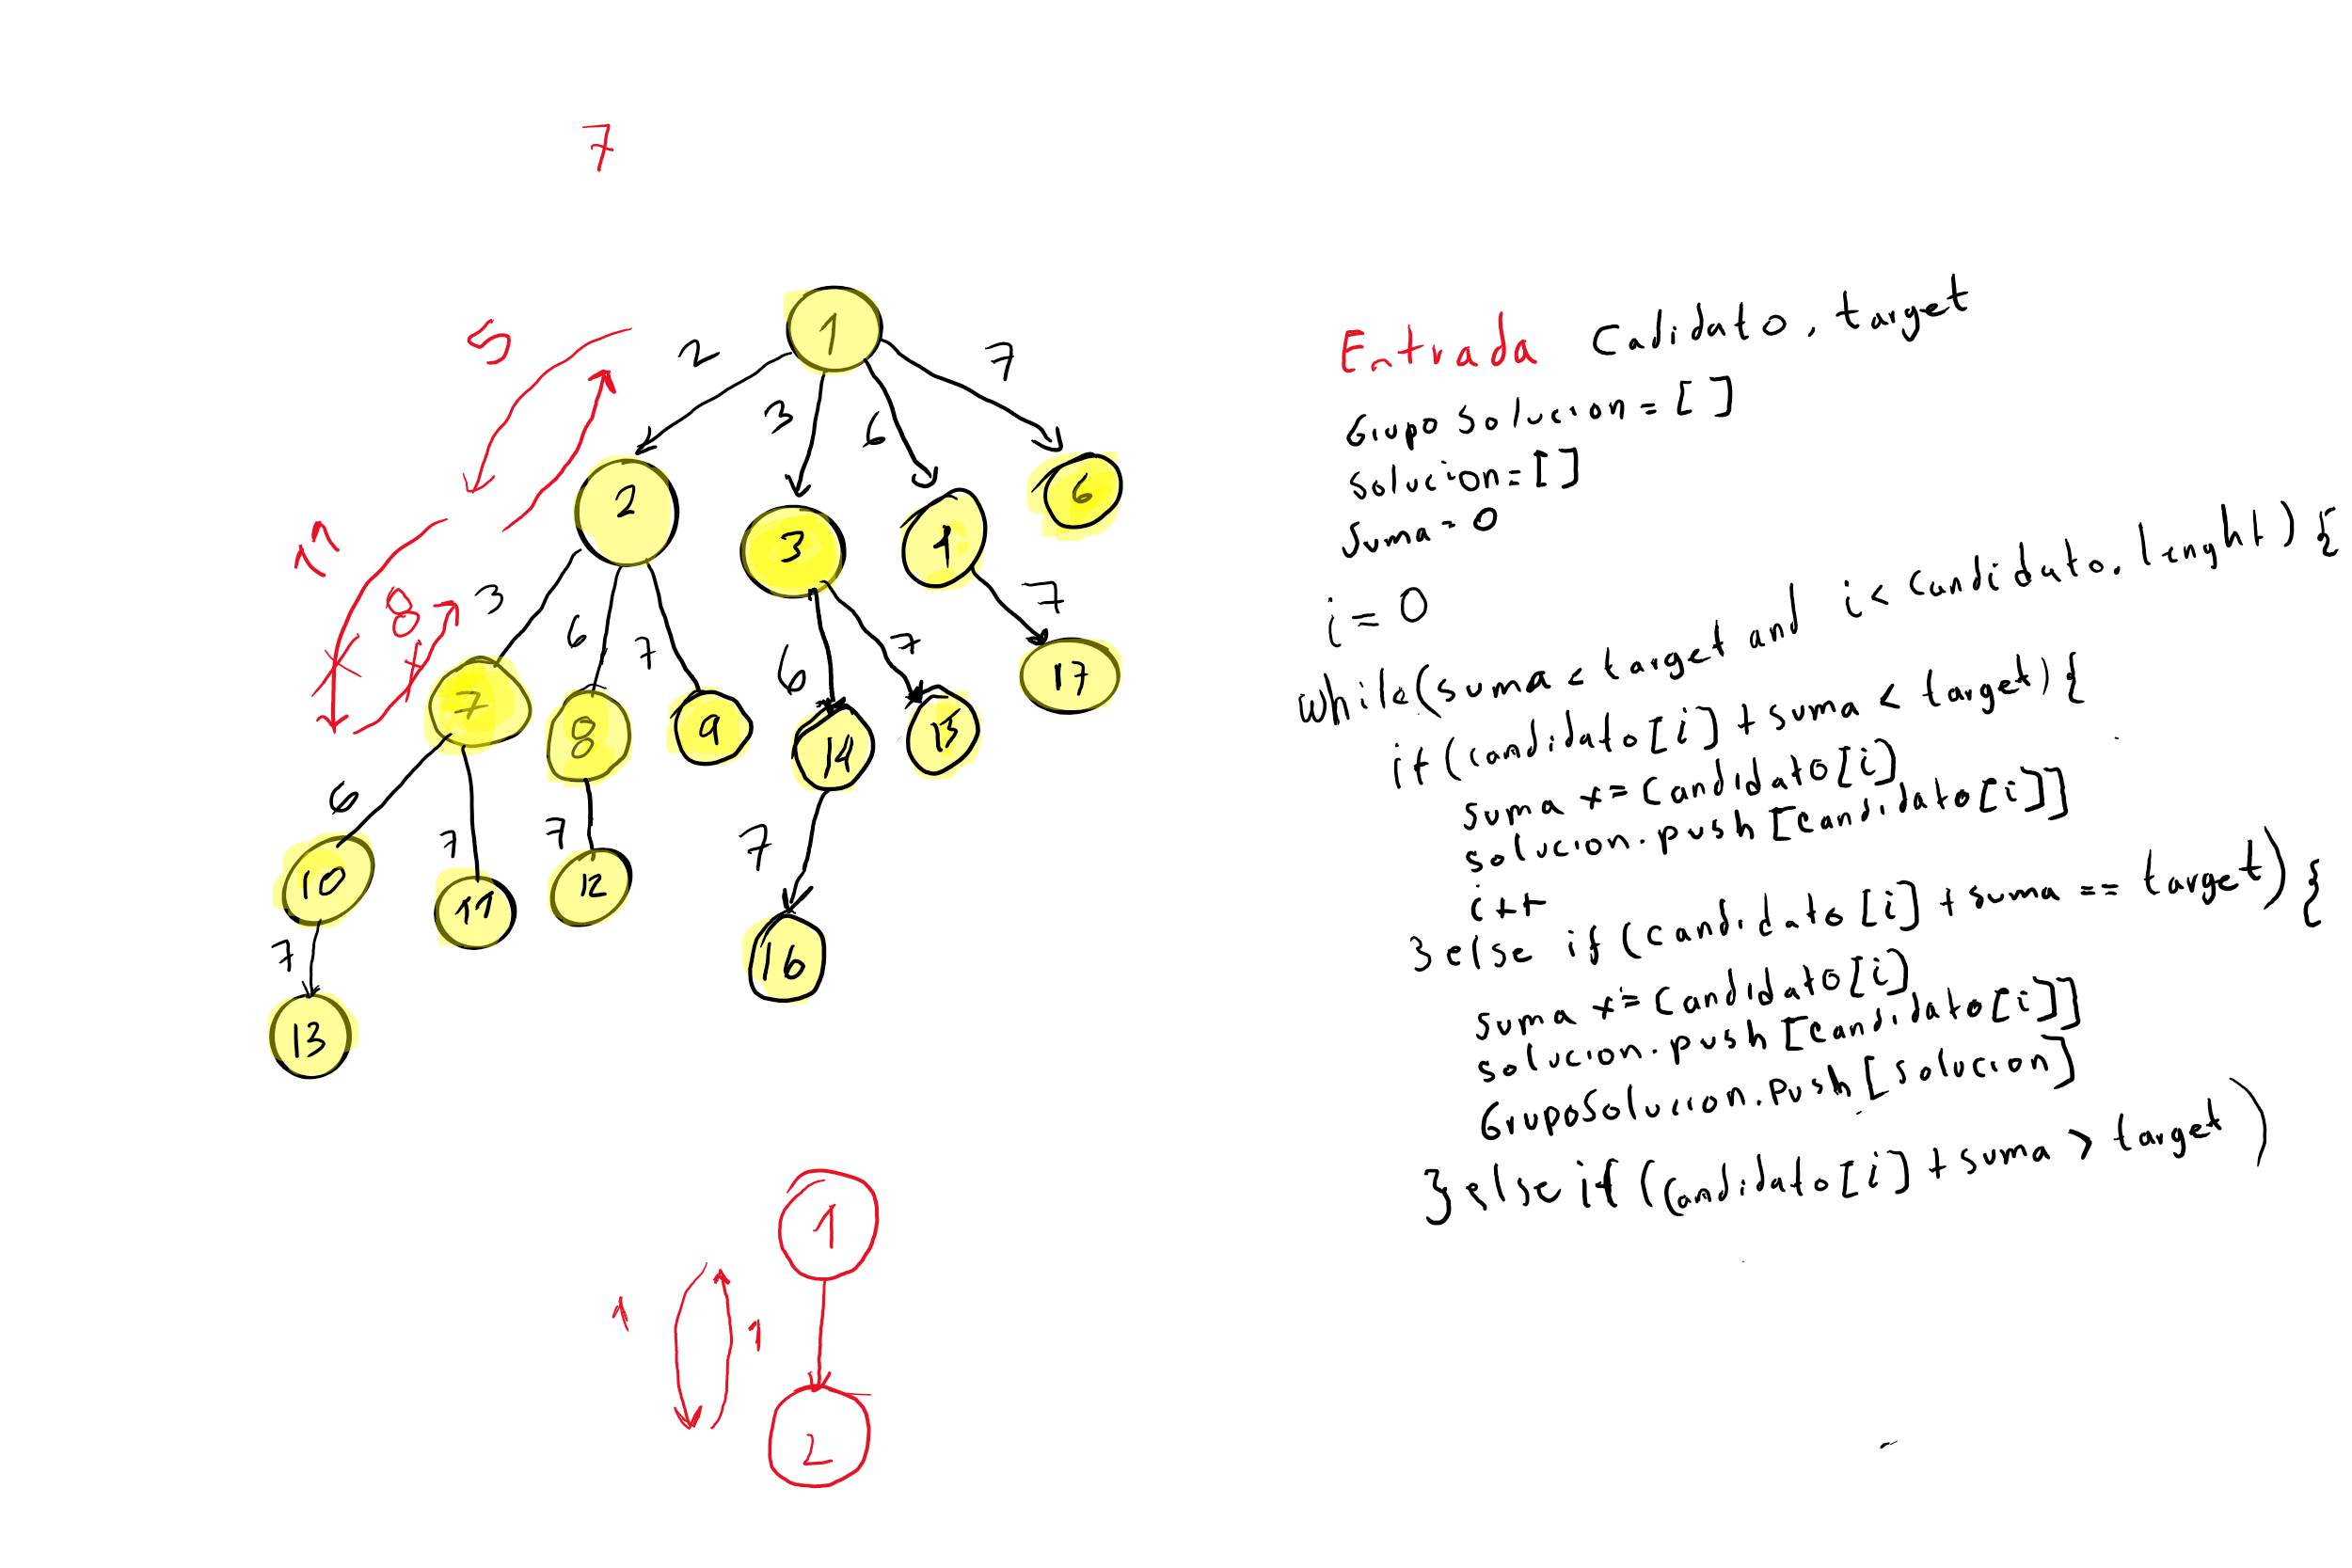 7
1
5
2
3
6
7
2
3
1
6
11
8
3
6
7
6
7
7
17
7
8
9
14
15
6
7
7
7
10
11
12
16
7
13
1
1
1
2
Entrada Calidato, target
Grupo Solucion = [ ]
Solucion = [ ]
Suma = 0
i = 0
while(suma < target and i < candidato.lenght) {
if (candidato[i] + suma < target) {
suma += Candidato[i]
solucion.push[candidato[i]]
i++
}else if (candidato[i] + suma == target) {
suma += Candidato[i]
solucion.push[candidato[i]]
GrupoSolucion.Push[solucion]
}else if (candidato[i] + suma > target)